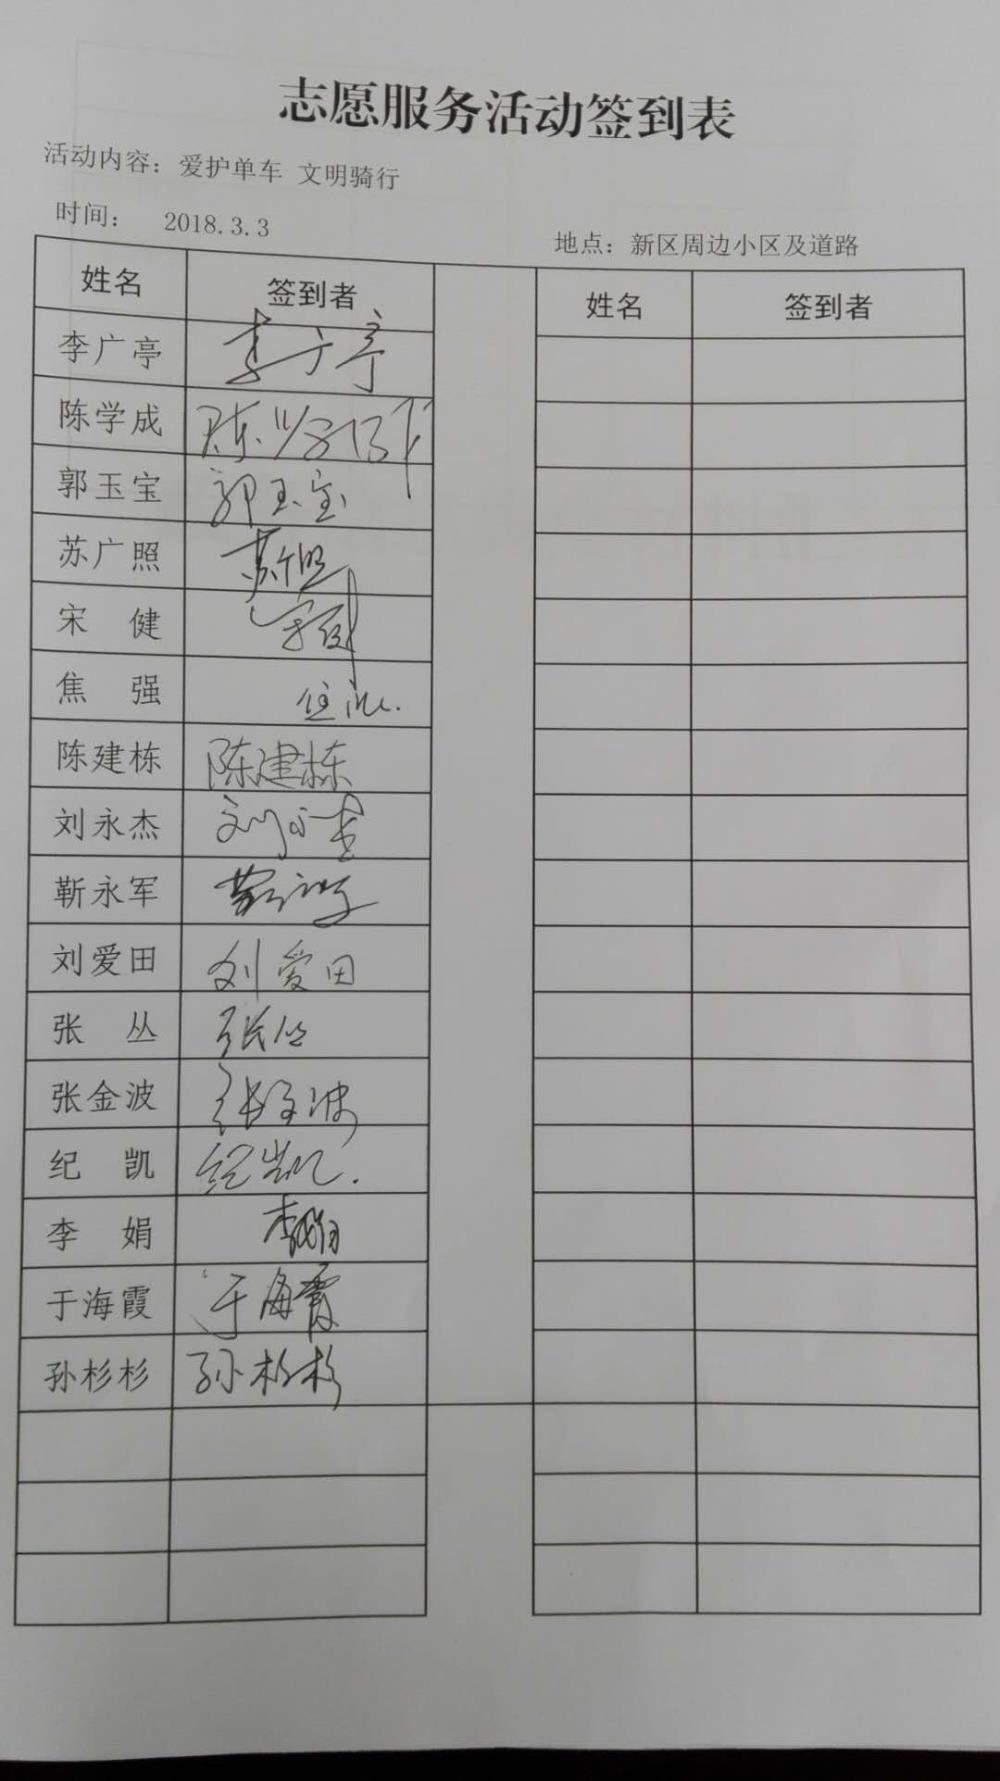 志愿服务活动签到表
活动内容：爱护单车 文明骑行
时间： 2018.3.3 地点：新区周边小区及道路
姓名 签到者 姓名 签到者
李广亭 李广亭
陈学成 陈学成
郭玉宝 郭玉宝
苏广照 苏广照
宋 健 宋健
焦 强
陈建栋 陈建栋
刘永杰 刘永杰
靳永军 靳永军
刘爱田 刘爱田
张 丛 张丛
张金波 张金波
纪 凯 纪凯.
李 娟 李娟
于海霞 于海霞
孙杉杉 孙杉杉